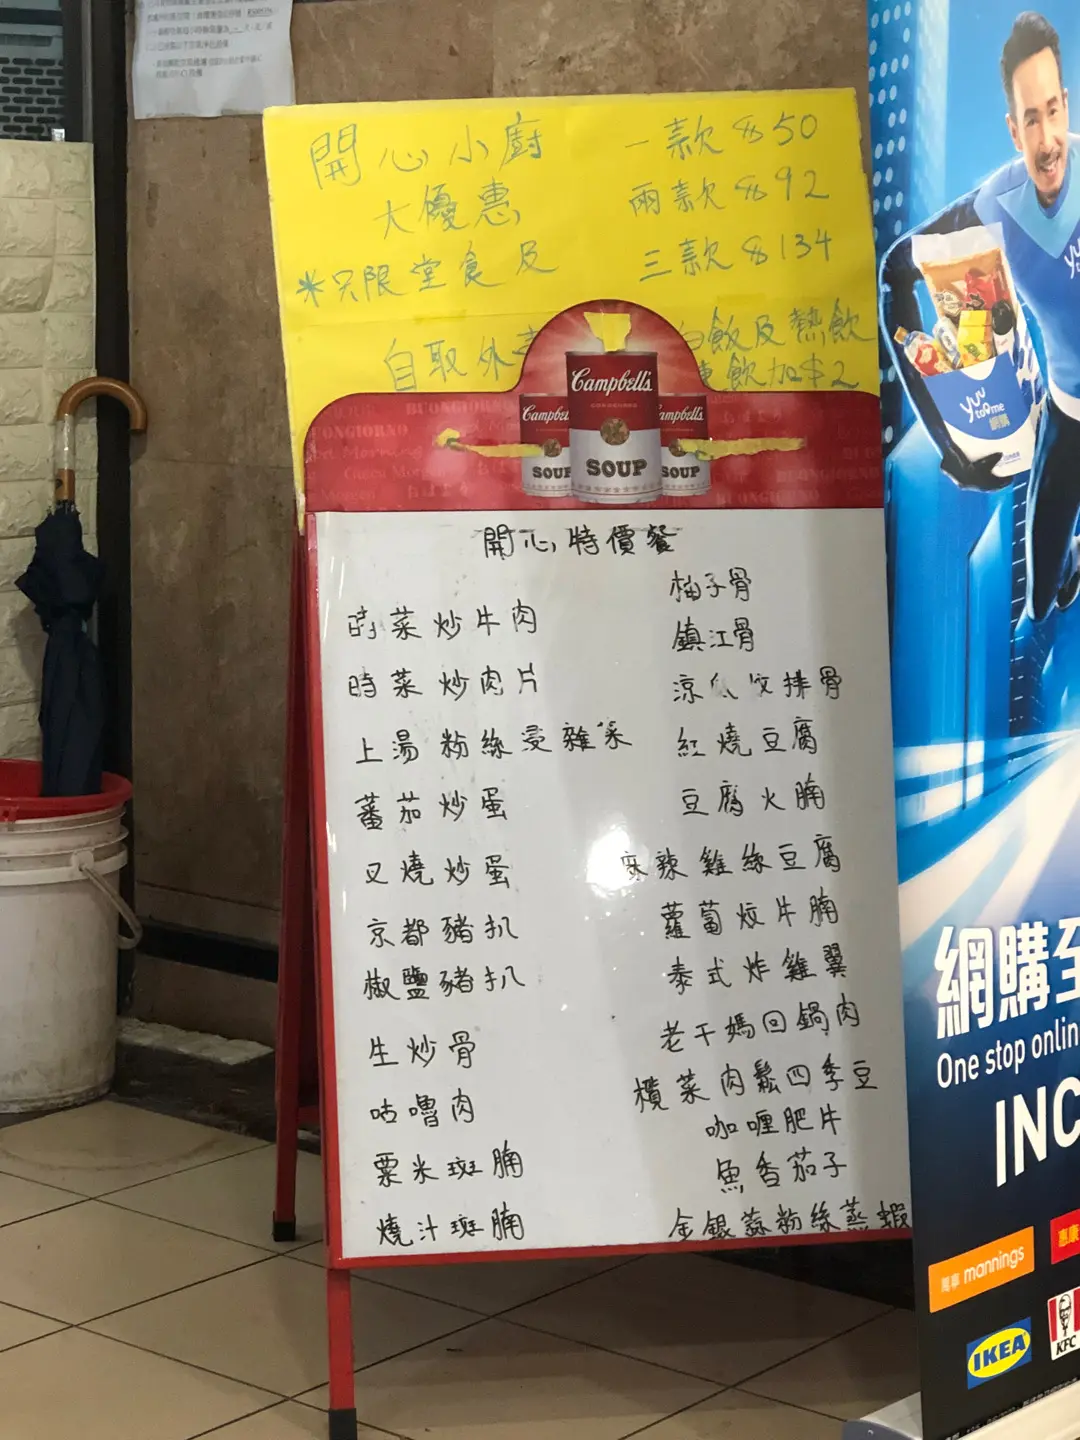 開心小廚
大優惠
*只限堂食及
自取外
一款 $50
兩款 $92
三款 $134
白飯及熱飲
凍飲加$2
Campbell's
Campbell's
Campbell's
SOUP
SOUP
SOUP
開心特價餐
時菜炒牛肉
時菜炒肉片
上湯粉絲浸雜菜
蕃茄炒蛋
叉燒炒蛋
京都豬扒
椒鹽豬扒
生炒骨
咕嚕肉
粟米斑腩
燒汁斑腩
柚子骨
鎮江骨
涼瓜炆排骨
紅燒豆腐
豆腐火腩
麻辣雞絲豆腐
蘿蔔炆牛腩
泰式炸雞翼
老干媽回鍋肉
欖菜肉鬆四季豆
咖喱肥牛
魚香茄子
金銀蒜粉絲蒸蝦
yuu
to me
網購
網購至
One stop onlin
INC
萬寧 mannings
惠康
IKEA
KFC